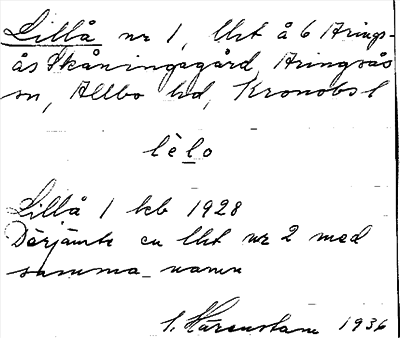 Lillå nr 1, lht å 6 Arings-
ås Skåningsgård, Aringsås
sn, Allbo hd, Kronobs l
lèlo
Lillå 1 kb 1928
Därjämte en lht nr 2 med
samma namn
S. Härenstam 1936